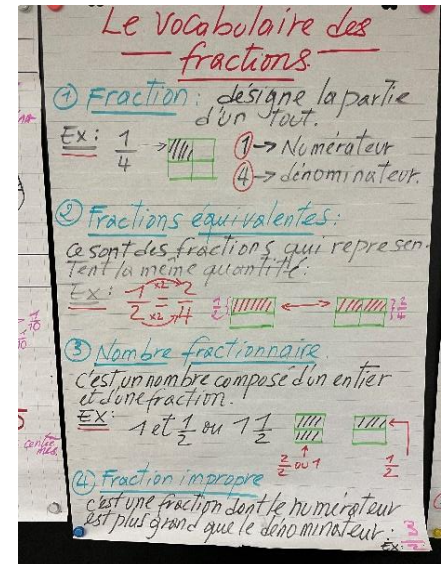 Le vocabulaire des
fractions
① Fraction : désigne la partie
d'un tout.
Ex : 1/4 → ① → Numérateur
④ → dénominateur.
② Fractions équivalentes :
ce sont des fractions qui représen-
tent la même quantité :
Ex : 1/2 = 2/4 x2 x2 1/2 2/4
③ Nombre fractionnaire
c'est un nombre composé d'un entier
et d'une fraction.
EX : 1 et 1/2 ou 1 1/2
2/2 ou 1 1/2
④ Fraction impropre
c'est une fraction dont le numérateur
est plus grand que le dénominateur.
Ex : 3/2